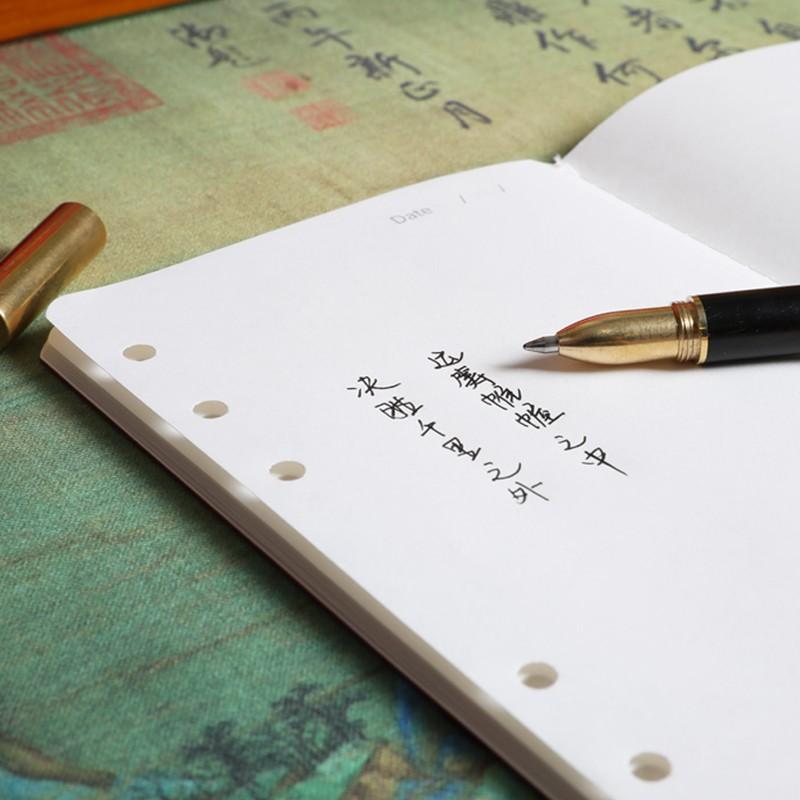 丙午新正月
御题
Date / /
运筹帷幄之中
决胜千里之外